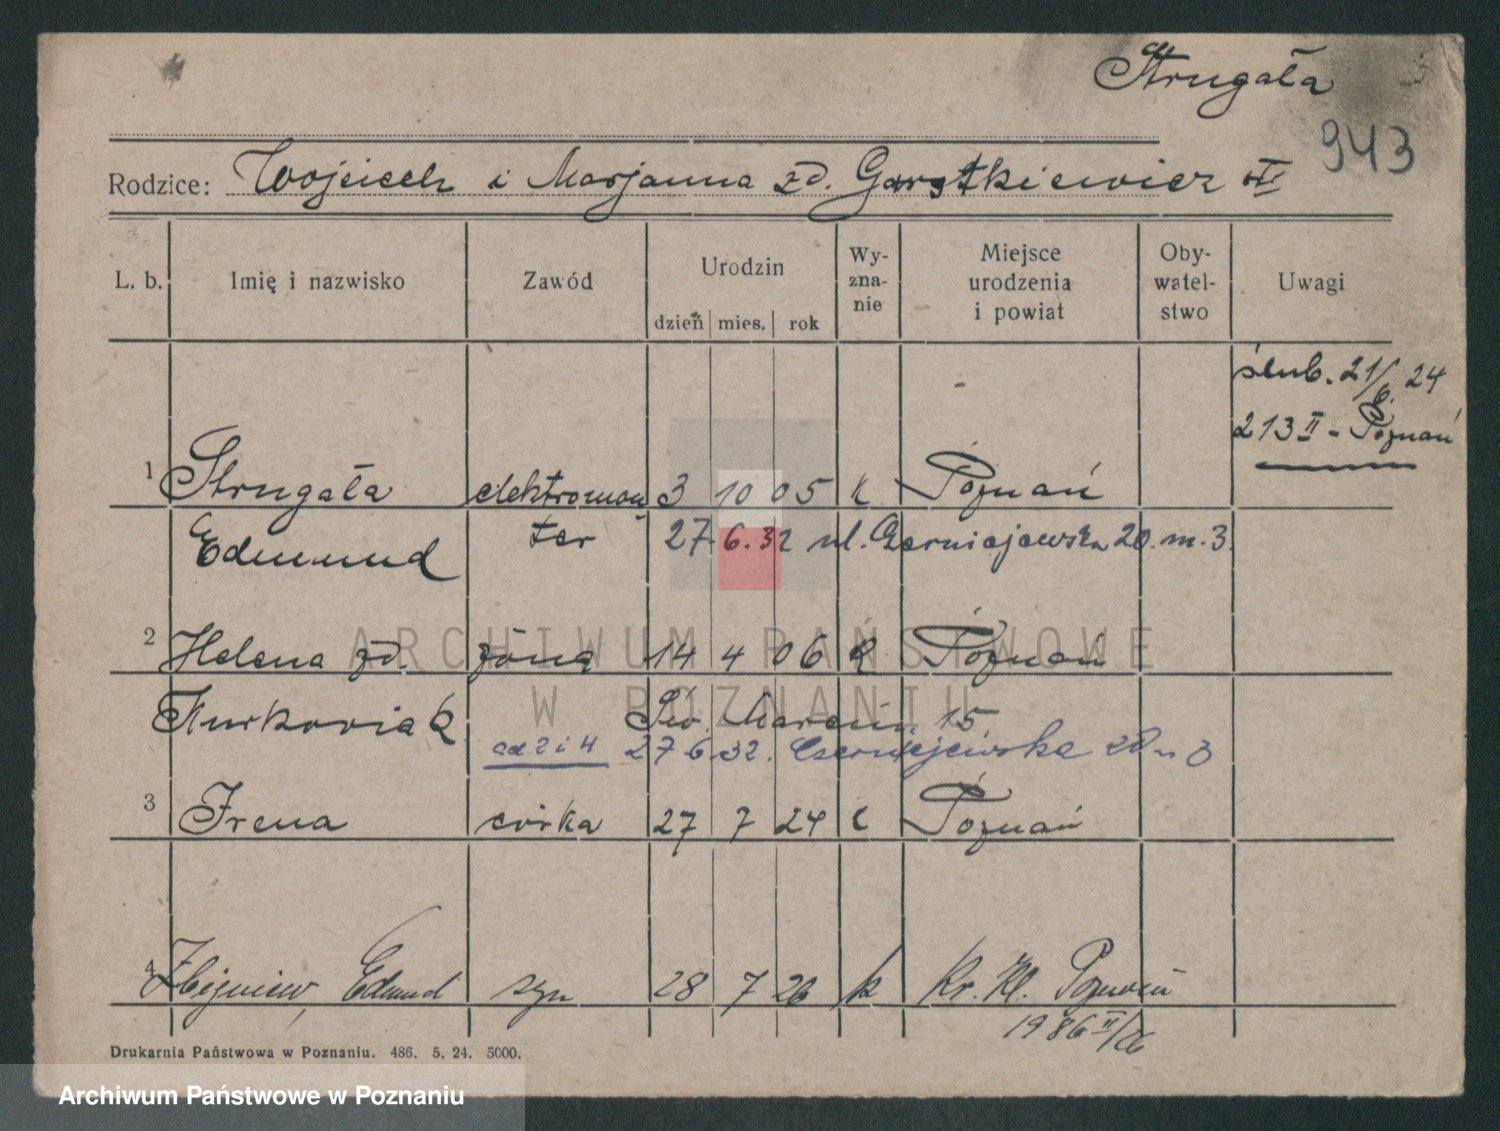 Strugała
943
Rodzice: Wojciech i Marjanna zd. Garstkiewicz
L. b. Imię i nazwisko Zawód Urodzin dzień mies. rok Wy-zna-nie Miejsce urodzenia i powiat Oby-watel-stwo Uwagi
ślub. 21/6. 24
213 II - Poznań
1 Strugała elektromon 3 10 05 k Poznań
Edmund ter 27. 6. 32 ul. Czerniejewska 20. m. 3.
2 Helena zd. żona 14 4 06 k Poznań
Kurkowiak Św. Marcin 15
ad 2 i 4 27 6 32. Czerniejewska 20 m 3
3 Irena córka 27 7 24 k Poznań
4 Zbigniew, Edmund syn 28 7 26 k Kr. Kl. Poznań
1986 II/26
Drukarnia Państwowa w Poznaniu. 486. 5. 24. 5000.
ARCHIWUM PAŃSTWOWE
W POZNANIU
Archiwum Państwowe w Poznaniu